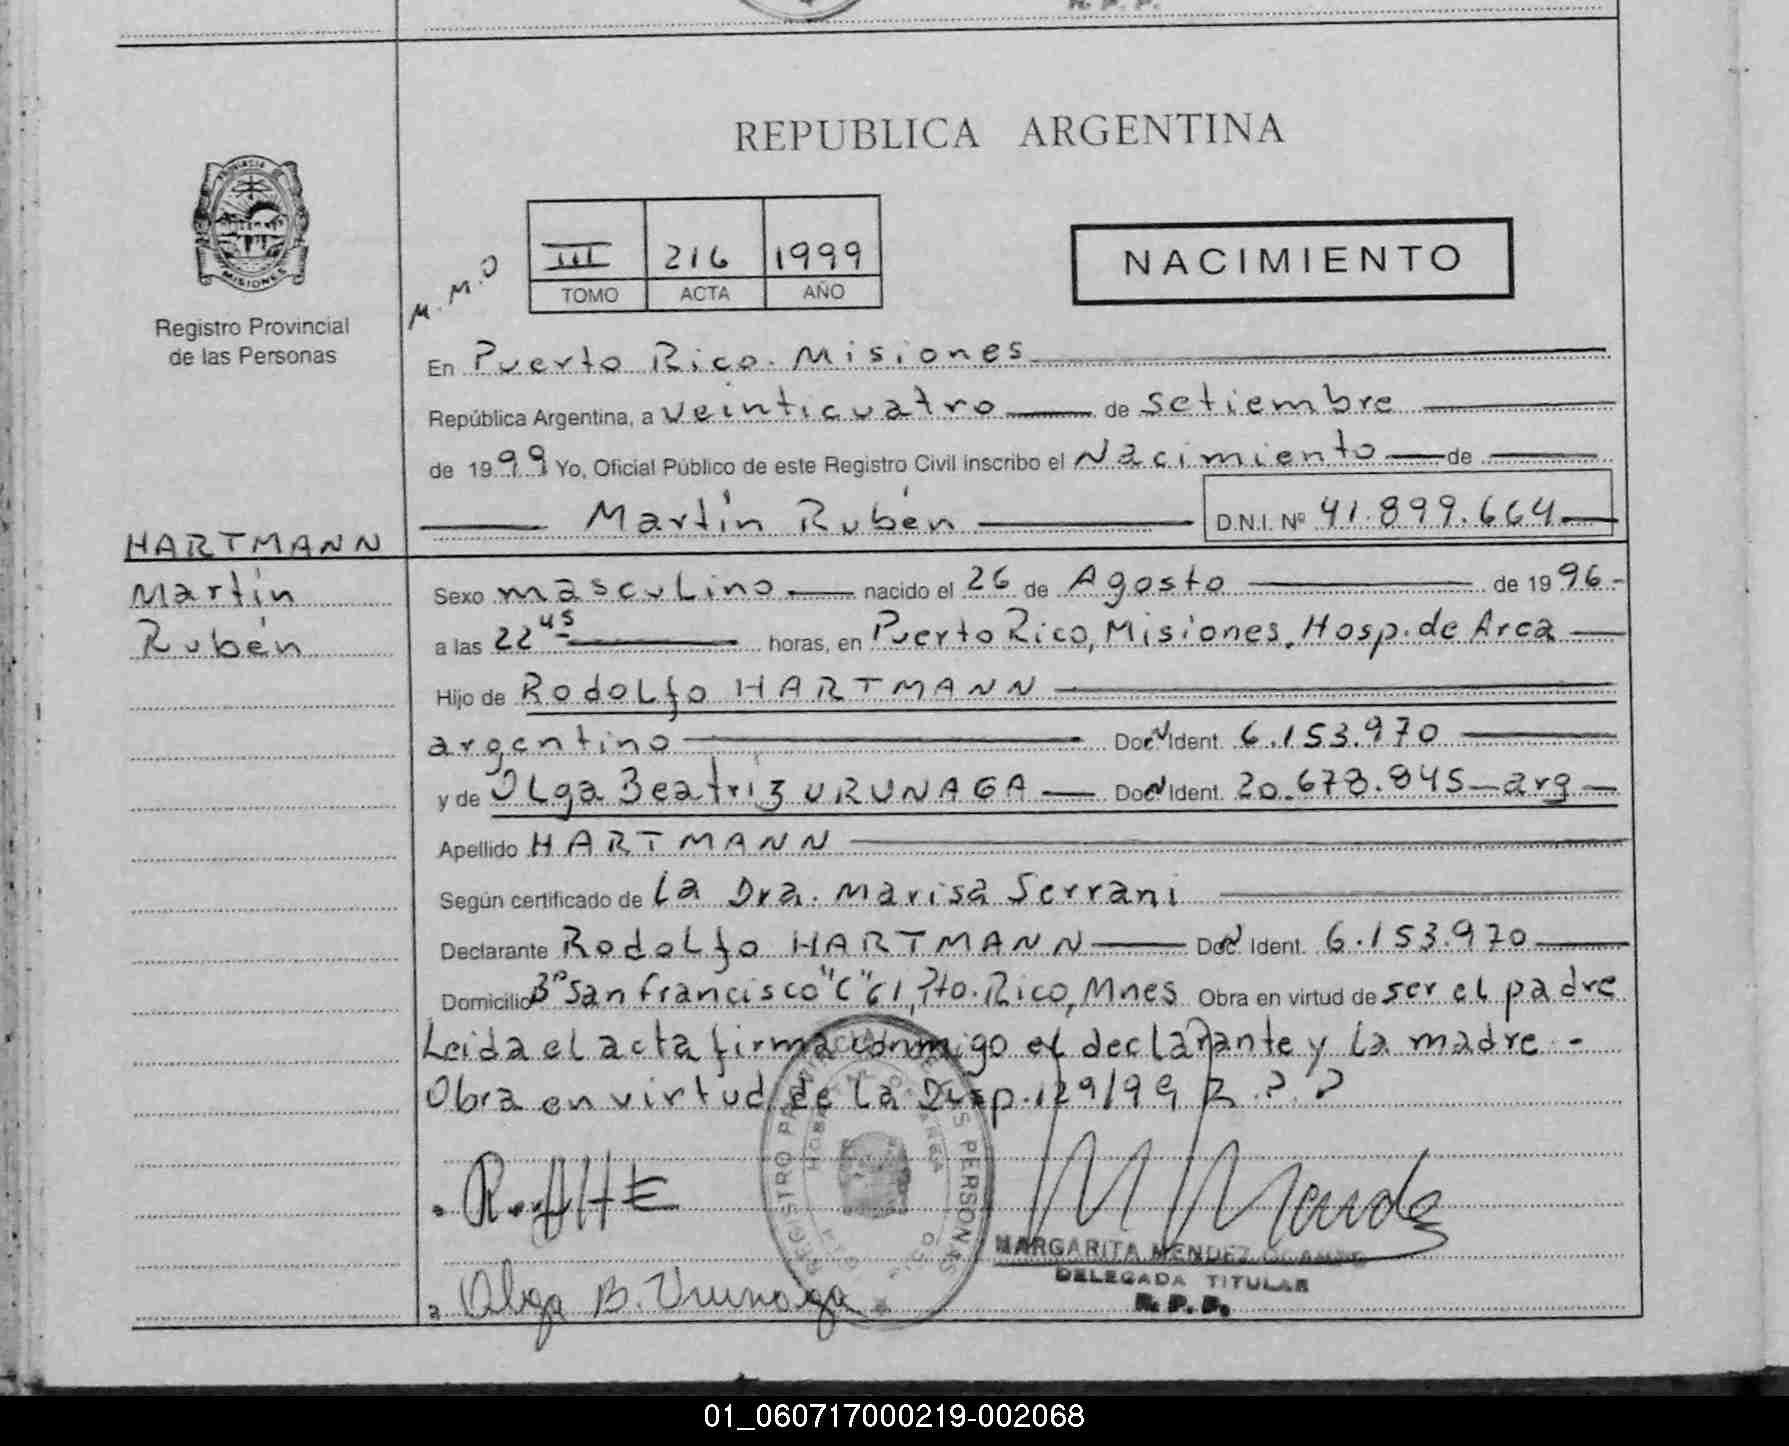 R. P. P.
REPUBLICA ARGENTINA
PROVINCIA
MISIONES
Registro Provincial
de las Personas
M. M. O
III 216 1999
TOMO ACTA AÑO
NACIMIENTO
En Puerto Rico. Misiones
República Argentina, a veinticuatro de setiembre
de 1999 Yo, Oficial Público de este Registro Civil inscribo el Nacimiento de
Martín Rubén D.N.I. Nº 41.899.664
HARTMANN
Martín
Rubén
Sexo masculino nacido el 26 de Agosto de 1996.-
a las 22 45 horas, en Puerto Rico, Misiones, Hosp. de Area
Hijo de Rodolfo HARTMANN
argentino Doc Ident. 6.153.970
y de Olga Beatriz URUNAGA Doc Ident. 20.678.845 - arg
Apellido HARTMANN
Según certificado de la Dra. Marisa Serrani
Declarante Rodolfo HARTMANN Doc Ident. 6.153.970
Domicilio Bº San Francisco "C" 61, Pto. Rico, Mnes Obra en virtud de ser el padre
Leida el acta firma conmigo el declarante y la madre -
Obra en virtud de la Disp. 129/99 R.P.P
REGISTRO PROVINCIAL DE LAS PERSONAS
Olga B. Urunaga
MARGARITA MENDEZ OCAMPO
DELEGADA TITULAR
R. P. P.
01_060717000219-002068